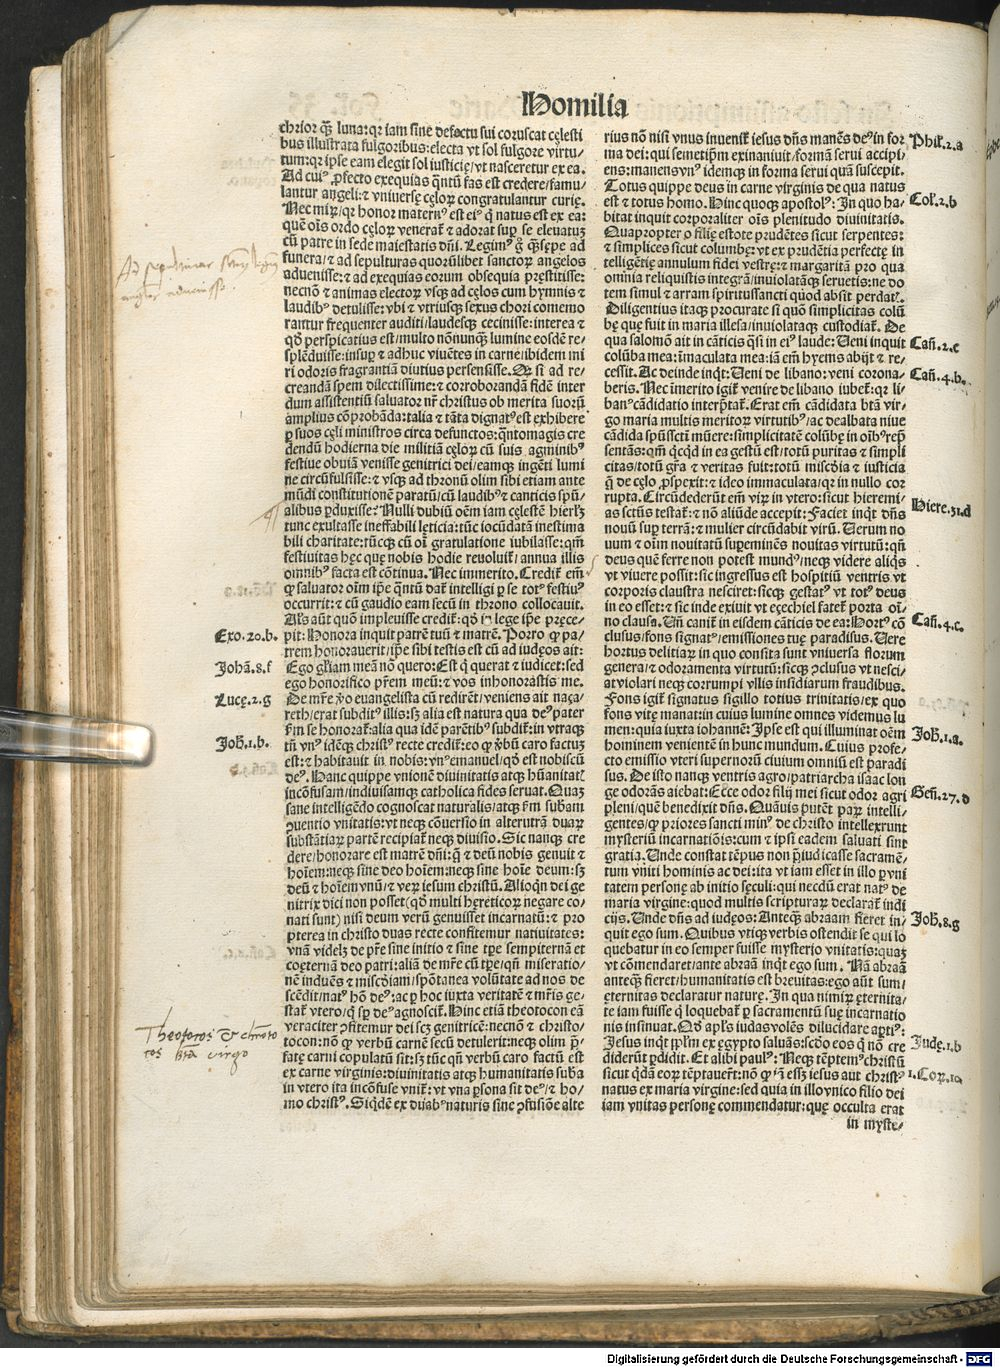 Homilia
chrior q̄ʒ luna: qr iam sine defectu sui coruscat cęlesti
bus illustrata fulgoribus: electa vt sol fulgore virtu-
tum: qr ipse eam elegit sol iusticię/ vt nasceretur ex ea.
Ad cuiꝰ ꝓfecto exequias q̄ntū fas est credere/ famu-
lantur angeli: ⁊ vniuersę cęloꝝ congratulantur curię.
Nec miꝝ/ qr honor maternꝰ est eiꝰ q̇ natus est ex ea:
quē oīs ordo cęloꝝ venerat̄ ⁊ adorat suꝑ se eleuatuʒ
cū patre in sede maiestatis dn̄i. Legimꝰ g̊ q̄sępe ad
funera/ ⁊ ad sepulturas quorūlibet sanctoꝝ angelos
aduenisse: ⁊ ad exequias eorum obsequia pręstitisse:
necnō ⁊ animas electoꝝ vsqʒ ad cęlos cum hymnis ⁊
laudibꝰ detulisse: vbi ⁊ vtriusqʒ sexus chori comemo
rantur frequenter auditi/ laudesqʒ cecinisse: interea ⁊
qd̓ perspicatius est/ multo nōnunqʒ lumine eosdē re-
splēduisse: insuꝑ ⁊ adhuc viuētes in carne/ ibidem mi
ri odoris fragrantiā diutius persensisse. Qꝙ si ad re-
creandā spem dilectissime: ⁊ corroborandā fidē inter
dum assistentiū saluator nr̄ christus ob merita suorū
amplius cōprobāda: talia ⁊ tāta dignatꝰ est exhibere
ꝑ suos cęli ministros circa defunctos: q̄ntomagis cre
dendū hodierna die militiā cęloꝝ cū suis agminibꝰ
festiue obuiā venisse genitrici dei/ eamqʒ ingēti lumi
ne circūfulsisse: ⁊ vsqʒ ad thronū olim sibi etiam ante
mūdi constitutionē paratū/ cū laudibꝰ ⁊ canticis spū-
alibus ꝑduxisse? Nulli dubiū oēm iam cęlestē hierlʒ
tunc exultasse ineffabili lęticia: tūc iocūdatā inestima
bili charitate: tūcqʒ cū oī gratulatione iubilasse: qm̄
festiuitas hęc que nobis hodie reuoluit̄/ annua illis
omnibꝰ facta est cōtinua. Nec immerito. Credit̄ em̄
ꝙ saluator oīm ip̄e q̄ntū dat̄ intelligi ꝑ se totꝰ festiuꝰ
occurrit: ⁊ cū gaudio eam secū in throno collocauit.
Als̄ aūt quō impleuisse credit̄: qd̓ in lege ip̄e pręce-
pit: Honora inquit patrē tuū ⁊ matrē. Porro ꝙ pa-
trem honorauerit/ ip̄e sibi testis est cū ad iudęos ait:
Ego gl̄iam meā nō quero: Est q̇ querat ⁊ iudicet: sed
ego honorifico pr̄em meū: ⁊ vos inhonorastis me.
De mr̄e v̊o euangelista cū redirēt/ veniens ait naça-
reth/ erat subditꝰ illis: sʒ alia est natura qua deꝰ pater
f̄m se honorat̄: alia qua idē parētibꝰ subdit̄: in vtraqʒ
tn̄ vnꝰ idēqʒ christꝰ recte credit̄: eo ꝙ v̄bū caro factuʒ
est: ⁊ habitauit in nobis: vnꝰ emanuel/ qd̓ est nobiscū
deꝰ. Hanc quippe vnionē diuinitatis atqʒ hūanitat̄
incōfusam/ indiuisamqʒ catholica fides seruat. Quaʒ
sane intelligēdo cognoscat naturalis/ atqʒ f̄m substam
ꝯuentio vnitatis: vt neqʒ cōuersio in alterutrā duaꝝ
substātiaꝝ partē recipiat̄ neqʒ diuisio. Sic nanqʒ cre
dere/ honorare est matrē dn̄i: q̄ ⁊ deū nobis genuit ⁊
hoīem: neqʒ sine deo hoīem: neqʒ sine hoīe deum: sʒ
deū ⁊ hoīem vnū/ ⁊ veꝝ iesum christū. Alioqn̄ dei ge
nitrix dici non posset (qd̓ multi hęreticoꝝ negare co-
nati sunt) nisi deum verū genuisset incarnatū: ⁊ pro
pterea in christo duas recte confitemur natiuitates:
vnā videlʒ de pr̄e sine initio ⁊ sine tp̄e sempiternā et
coęternam deo patri: aliā de mr̄e cū tp̄e/ qn̄ miseratio-
nē induēs ⁊ misc̄diam/ spōtanea volūtate ad nos de
scēdit/ natꝰ hō deꝰ: ac ꝑ hoc iuxta veritatē ⁊ mr̄is ge-
stat̄ vtero/ q̇ sꝑ deꝰ agnoscit̄. Hinc etiā theotocon eā
veraciter ꝓfitemur dei scʒ genitricē: necnō ⁊ christo-
tocon: nō ꝙ verbū carnē secū detulerit: neqʒ olim p̄-
fatę carni copulatū sit: sʒ tūc qn̄ verbū caro factū est
ex carne virginis: diuinitatis atqʒ humanitatis suba
in vtero ita incōfuse vnit̄: vt vna ꝑsona sit deꝰ/ ⁊ ho-
mo christꝰ. Siqdē ex duabꝰ naturis sine ꝯfusiōe alte
rius nō nisi vnus inuenit̄ iesus dn̄s manēs deꝰ in for
ma dei: qui semetip̄m exinaniuit/ formā serui accipi-
ens: manens vnꝰ idemqʒ in forma serui quā suscepit.
Totus quippe deus in carne virginis de qua natus
est ⁊ totus homo. Hinc quoqʒ apostolꝰ: In quo ha-
bitat inquit corporaliter oīs plenitudo diuinitatis.
Quapropter o filię estote prudētes sicut serpentes:
⁊ simplices sicut columbę: vt ex prudētia perfectę in
telligētię annulum fidei vestrę: ⁊ margaritā pro qua
omnia reliquistis integrā/ inuiolatāqʒ seruetis: ne do
tem simul ⁊ arram spiritussancti quod absit perdat̄.
Diligentius itaqʒ procurate si quō simplicitas colū
bę quę fuit in maria illesa/ inuiolataqʒ custodiat̄. De
qua salomō ait in cāticis q̄si in eiꝰ laude: Ueni inquit
colūba mea: īmaculata mea: iā em̄ hyems abijt ⁊ re-
cessit. Ac deinde inqt: Ueni de libano: veni corona-
beris. Nec īmerito igit̄ venire de libano iubet̄: qr li-
banꝰ cādidatio interp̄tat̄. Erat em̄ cādidata btā vir-
go maria multis meritoꝝ virtutibꝰ/ ac dealbata niue
cādida spūsscti mūere: simplicitatē colūbę in oībꝰ rep̄
sentās: qm̄ qcqd in ea gestū est/ totū puritas ⁊ simpli
citas/ totū gr̄a ⁊ veritas fuit: totū misc̄dia ⁊ iusticia
q̄ de cęlo ꝓspexit: ⁊ ideo immaculata/ qr in nullo cor
rupta. Circūdederūt em̄ viꝝ in vtero: sicut hieremi-
as sctūs testat̄: ⁊ nō aliūde accepit: Faciet inqt dn̄s
nouū suꝑ terrā: ⁊ mulier circūdabit virū. Uerum no
uum ⁊ oīm nouitatū suꝑeminēs nouitas virtutū: qn̄
deus quē ferre non potest mundꝰ/ neqʒ videre aliqs
vt viuere possit: sic ingressus est hospitiū ventris vt
corporis claustra nesciret: sicqʒ gestatꝰ vt totꝰ deus
in eo esset: ⁊ sic inde exiuit vt ęzechiel fatet̄ porta oī-
no clausa. Un̄ canit̄ in eisdem cāticis de ea: Hortꝰ cō
clusus/ fons signatꝰ/ emissiones tuę paradisus. Uere
hortus delitiaꝝ in quo consita sunt vniuersa floꝝum
genera/ ⁊ odoramenta virtutū: sicqʒ ꝯclusus vt nesci-
at violari neqʒ corrumpi vllis insidiarum fraudibus.
Fons igit̄ signatus sigillo totius trinitatis/ ex quo
fons vitę manat: in cuius lumine omnes videmus lu
men: quia iuxta iohannē: Ipse est qui illuminat oēm
hominem venientē in hunc mundum. Cuius profe-
cto emissio vteri supernorū ciuium omniū est paradi
sus. De isto nanqʒ ventris agro/ patriarcha isaac lon
ge odorās aiebat: Ecce odor filij mei sicut odor agri
pleni/ quē benedixit dn̄s. Quāuis putēt paꝝ intelli-
gentes/ ꝙ priores sancti minꝰ de christo intellexꝛunt
mysteriū incarnatiōis: cum ⁊ ipsi eadem saluati sint
gratia. Unde constat tēpus non p̄iudicasse sacramē-
tum vniti hominis ac dei: ita vt iam esset in illo ꝑ vni
tatem personę ab initio sęculi: qui necdū erat natꝰ de
maria virgine: quod multis scripturaꝝ declarat̄ indi
cijs. Unde dn̄s ad iudęos: Anteqʒ abraam fieret in-
quit ego sum. Quibus vtiqʒ verbis ostendit se qui lo
quebatur in eo semper fuisse mysterio vnitatis: quaʒ
vt cōmendaret/ ante abraā inqt ego sum. Nā abraā
anteqʒ fieret/ humanitatis est breuitas: ego aūt sum/
ęternitas declaratur naturę. In qua nimiꝝ ęternita-
te iam fuisse q̇ loquebat̄ ꝑ sacramentū suę incarnatio
nis insinuat. Qd̓ apl̄s iudas volēs dilucidare aꝑti?:
Jesus inqt pl̄m ex ęgypto saluās: scd̓o eos q̇ nō cre
diderūt ꝑdidit. Et alibi paulꝰ: Neqʒ tēptemꝰ christū
sicut q̇dā eoꝝ tēptauert̄: nō ꝙ iā essʒ iesus aut christꝰ
natus ex maria virgine: sed quia in illo vnico filio dei
iam vnitas personę commendatur: quę occulta erat
in myste-
Exo. 20. b.
Johā. 8. f
Lucę. 2. g
Joh̄. 1. b.
Theotocos & christo
tocos bta virgo
Phil̄. 2. a
Col̄. 2. b
Cān̄. 2. c
Cān̄. 4. b.
Hiere. 31. d
Cān̄. 4. c.
Joh̄. 1. a.
Gen̄. 27. d
Joh̄. 8. g
Judę. 1. b
1. Coꝝ. 10.
Digitalisierung gefördert durch die Deutsche Forschungsgemeinschaft - DFG